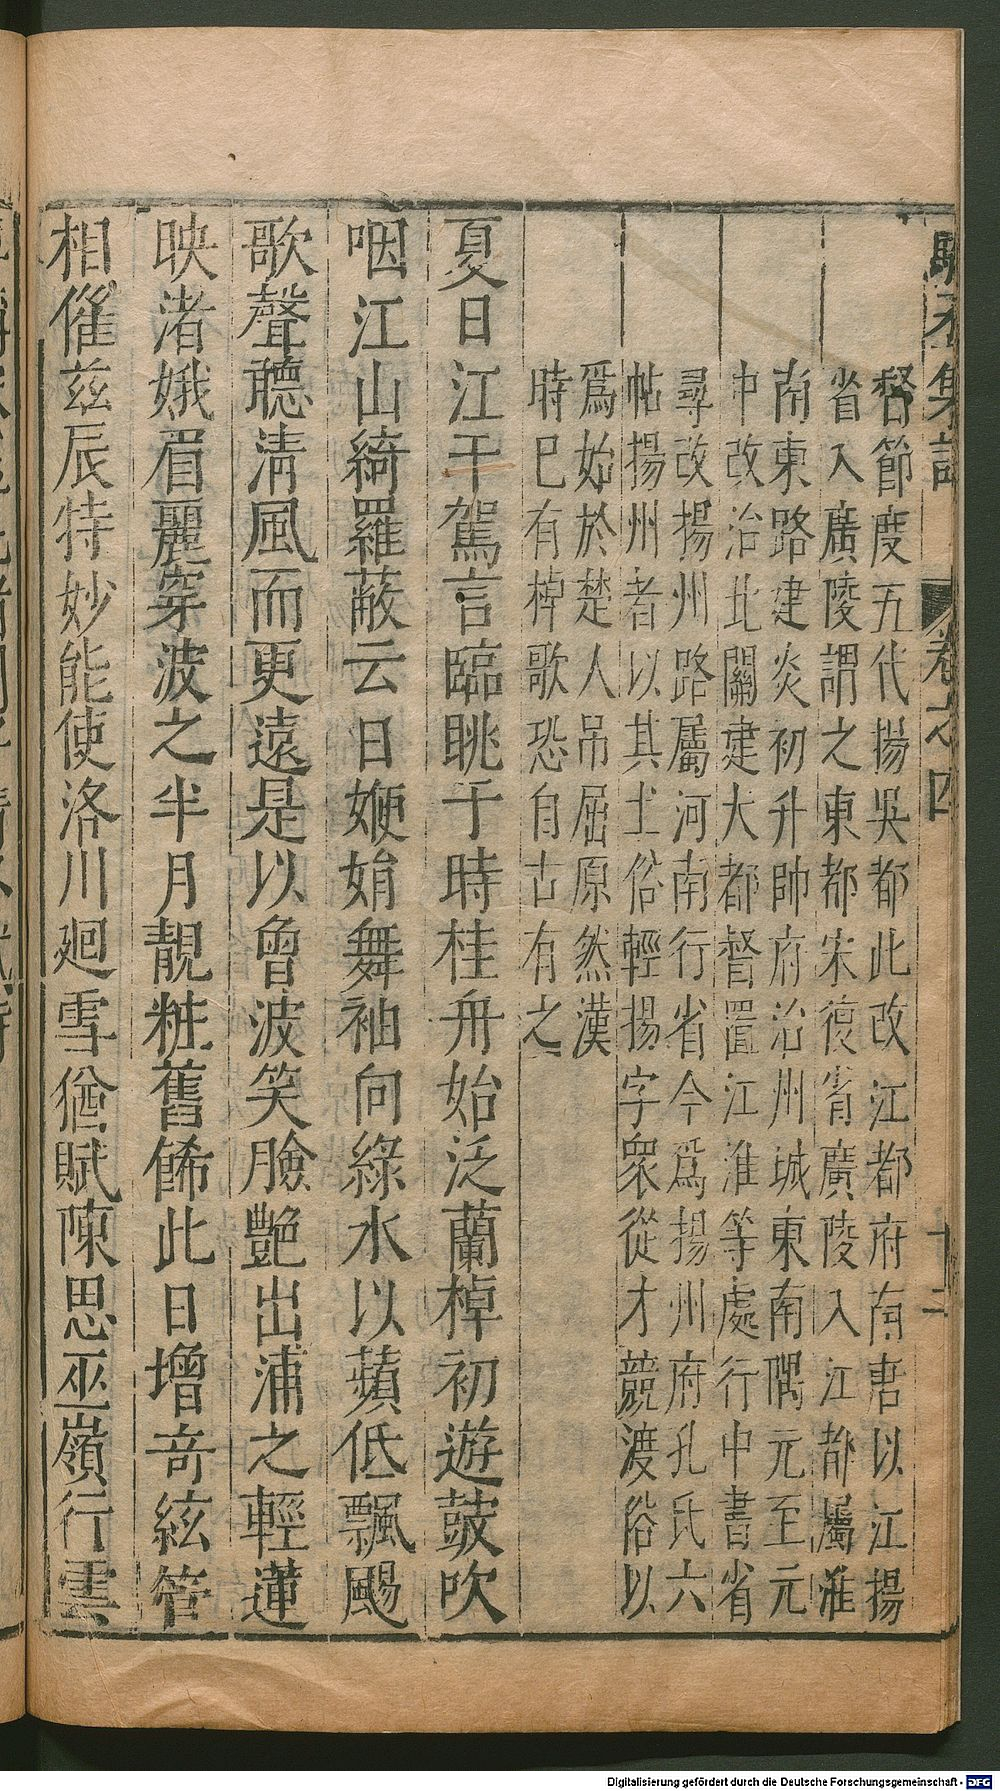 駱丞集註 卷之四 十二
督節度五代揚吳都此改江都府南唐以江揚
省入廣陵謂之東都宋復省廣陵入江都屬淮
南東路建炎初升帥府治州城東南隅元至元
中改治北關建大都督置江淮等處行中書省
尋改揚州路屬河南行省今爲揚州府孔氏六
帖揚州者以其土俗輕揚字衆從才競渡俗以
爲始於楚人吊屈原然漢
時巳有棹歌恐自古有之
夏日江干駕言臨眺于時桂舟始泛蘭棹初遊皷吹
咽江山綺羅蔽云日㛹娟舞袖向綠水以蘋低飄颺
歌聲聽淸風而更遠是以㑹波笑臉艷出浦之輕蓮
映渚娥眉麗穿波之半月靚粧舊餙此日增奇絃管
相催茲辰特妙能使洛川廻雪猶賦陳思巫嶺行雲
Digitalisierung gefördert durch die Deutsche Forschungsgemeinschaft - DFG